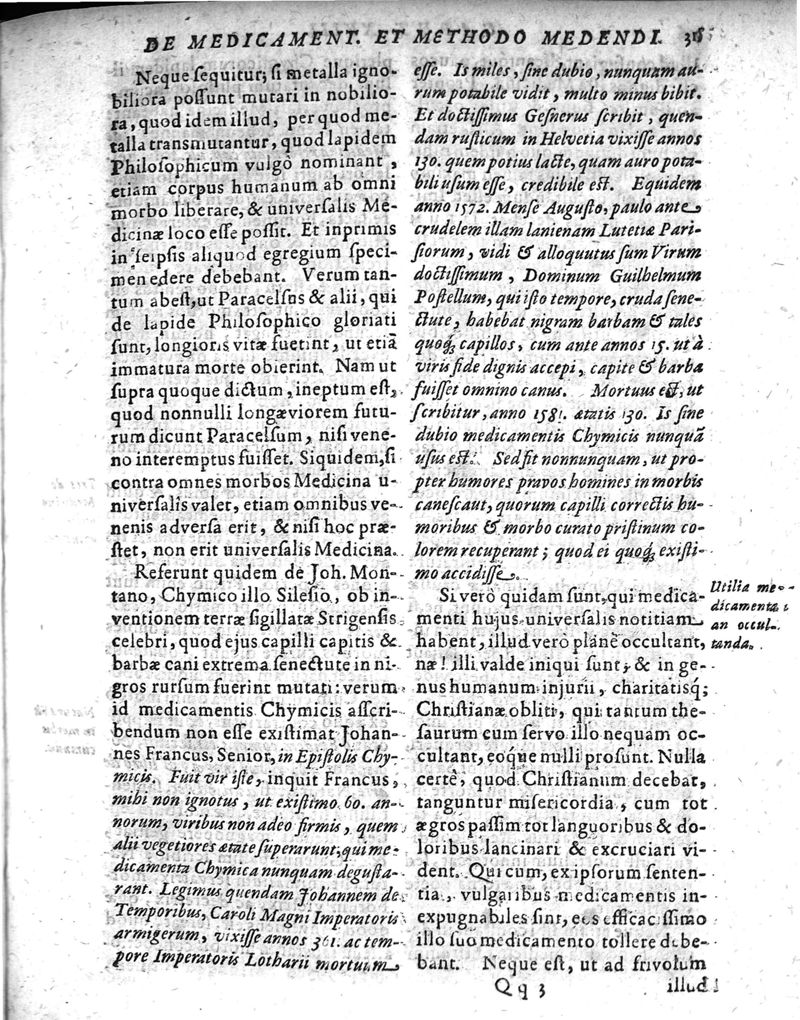 DE MEDICAMENT. ET METHODO MEDENDI.
Neque ſequitur, ſi metalla igno-
biliora poſſunt mutari in nobilio-
ra, quod idem illud, per quod me-
talla transmutantur, quod lapidem
Philoſophicum vulgò nominant,
etiam corpus humanum ab omni
morbo liberare, & univerſalis Me-
dicinæ loco eſſe poſſit. Et inprimis
in ſeipſis aliquod egregium ſpeci-
men edere debebant. Verum tan-
tum abeſt, ut Paracelſus & alii, qui
de lapide Philoſophico gloriati
ſunt, longioris vitæ fuerint, ut etiã
immatura morte obierint. Nam ut
ſupra quoque dictum, ineptum eſt,
quod nonnulli longæviorem futu-
rum dicunt Paracelſum, niſi vene-
no interemptus fuiſſet. Siquidem, ſi
contra omnes morbos Medicina u-
niverſalis valet, etiam omnibus ve-
nenis adverſa erit, & niſi hoc præ-
ſtet, non erit univerſalis Medicina.
Referunt quidem de Joh. Mon-
tano, Chymico illo Sileſio, ob in-
ventionem terræ ſigillatæ Strigenſis
celebri, quod ejus capilli capitis &
barbæ cani extrema ſenectute in ni-
gros rurſum fuerint mutati: verum
id medicamentis Chymicis aſſcri-
bendum non eſſe exiſtimat Johan-
nes Francus, Senior, in Epiſtolis Chy-
micis. Fuit vir iſte, inquit Francus,
mihi non ignotus, ut exiſtimo 60. an-
norum, viribus non adeo firmis, quem
alii vegetiores ætate ſuperarunt; qui me-
dicamenta Chymica nunquam deguſta-
rant. Legimus quendam Johannem de
Temporibus, Caroli Magni Imperatoris
armigerum, vixiſſe annos 361. ac tem-
pore Imperatoris Lotharii mortuum
eſſe. Is miles, ſine dubio, nunquam au-
rum potabile vidit, multo minus bibit.
Et doctiſſimus Geſnerus ſcribit, quen-
dam ruſticum in Helvetia vixiſſe annos
130. quem potius lacte, quam auro pota-
bili uſum eſſe, credibile eſt. Equidem
anno 1572. Menſe Auguſto, paulo ante
crudelem illam lanienam Lutetiæ Pari-
ſiorum, vidi & alloquutus ſum Virum
doctiſſimum, Dominum Guilhelmum
Poſtellum, qui iſto tempore, cruda ſene-
ctute, habebat nigram barbam & tales
quoq; capillos, cum ante annos 15. ut à
viris fide dignis accepi, capite & barba
fuiſſet omnino canus. Mortuus eſt, ut
ſcribitur, anno 1581. ætatis 130. Is ſine
dubio medicamentis Chymicis nunquã
uſus eſt. Sed fit nonnunquam, ut pro-
pter humores pravos homines in morbis
caneſcaut, quorum capilli correctis hu-
moribus & morbo curato priſtinum co-
lorem recuperant; quod ei quoq; exiſti-
mo accidiſſe.
Si verò quidam ſunt, qui medica-
menti hujus univerſalis notitiam
habent, illud verò planè occultant,
næ! illi valde iniqui ſunt, & in ge-
nus humanum injurii, charitatisq;
Chriſtianæ obliti, qui tantum the-
ſaurum cum ſervo illo nequam oc-
cultant, eoque nulli proſunt. Nulla
certè, quod Chriſtianum decebat,
tanguntur miſericordia, cum tot
ægros paſſim tot languoribus & do-
loribus lancinari & excruciari vi-
dent. Qui cum, ex ipſorum ſenten-
tia, vulgaribus medicamentis in-
expugnabiles ſint, eos efficaciſſimo
illo ſuo medicamento tollere debe-
bant. Neque eſt, ut ad frivolum
Utilia me-
dicamenta
an occul-
tanda.
Qq 3
illud